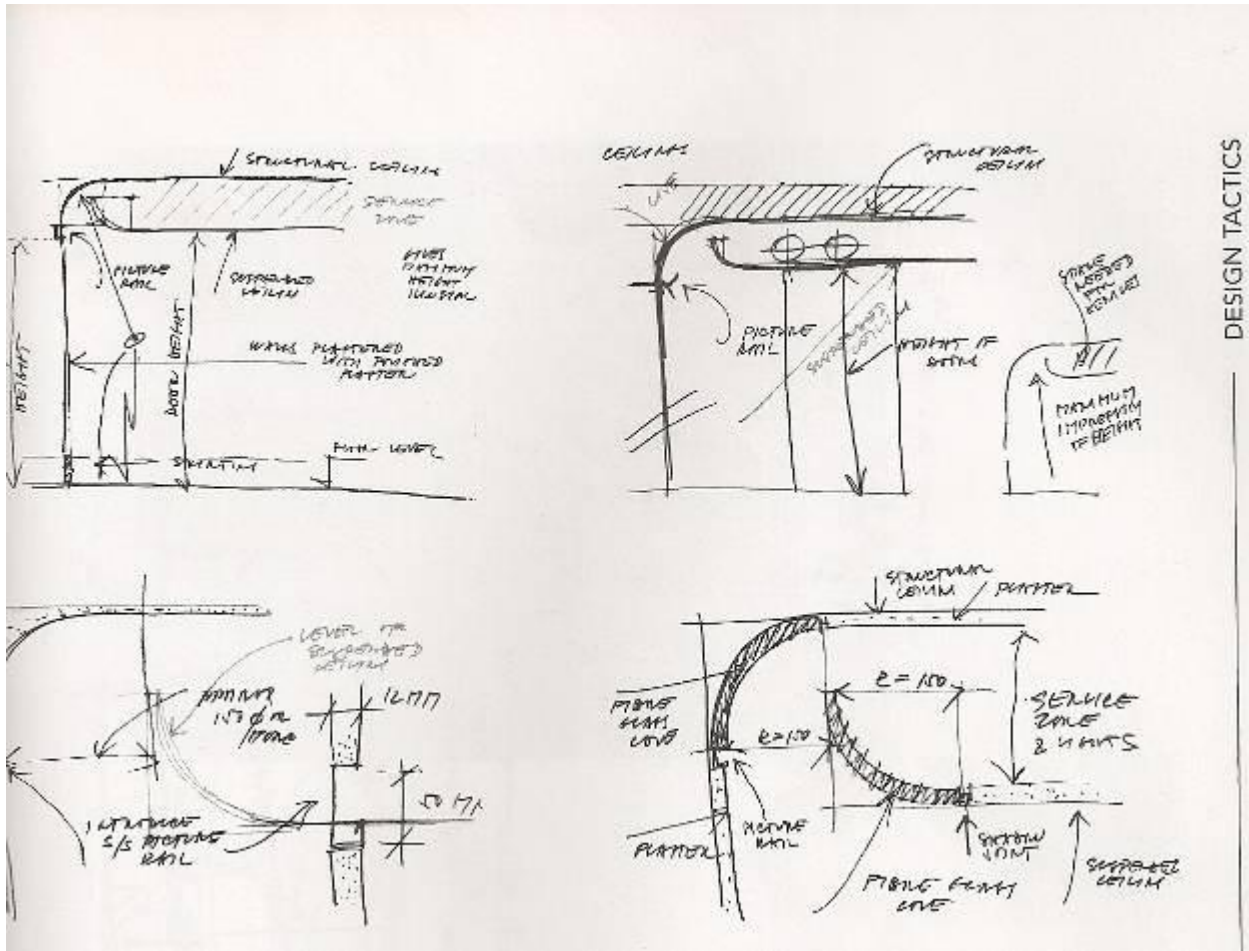 STRUCTURAL CEILING
SERVICE
ZONE
PICTURE
RAIL
SUSPENDED
CEILING
GIVES
MAXIMUM
HEIGHT
HEIGHT
DOOR HEIGHT
WALLS PLASTERED
WITH POLISHED
PLASTER
SKIRTING
FLOOR LEVEL
CEILINGS
STRUCTURAL
CEILING
LINE
PICTURE
RAIL
SUSPENDED
CEILING
HEIGHT OF
SPACE
NEEDED
FOR
SERVICES
MAXIMUM
IMPRESSION
OF HEIGHT
DESIGN TACTICS
LEVEL OF
SUSPENDED
CEILING
150
12 MM
50 MM
INTRODUCE
S/S PICTURE
RAIL
STRUCTURAL
CEILING
PLASTER
FIBRE
GLASS
COVE
R=150
R=150
SERVICE
ZONE
& LIGHTS
PLASTER
PICTURE
RAIL
SHADOW
JOINT
FIBRE GLASS
COVE
SUSPENDED
CEILING